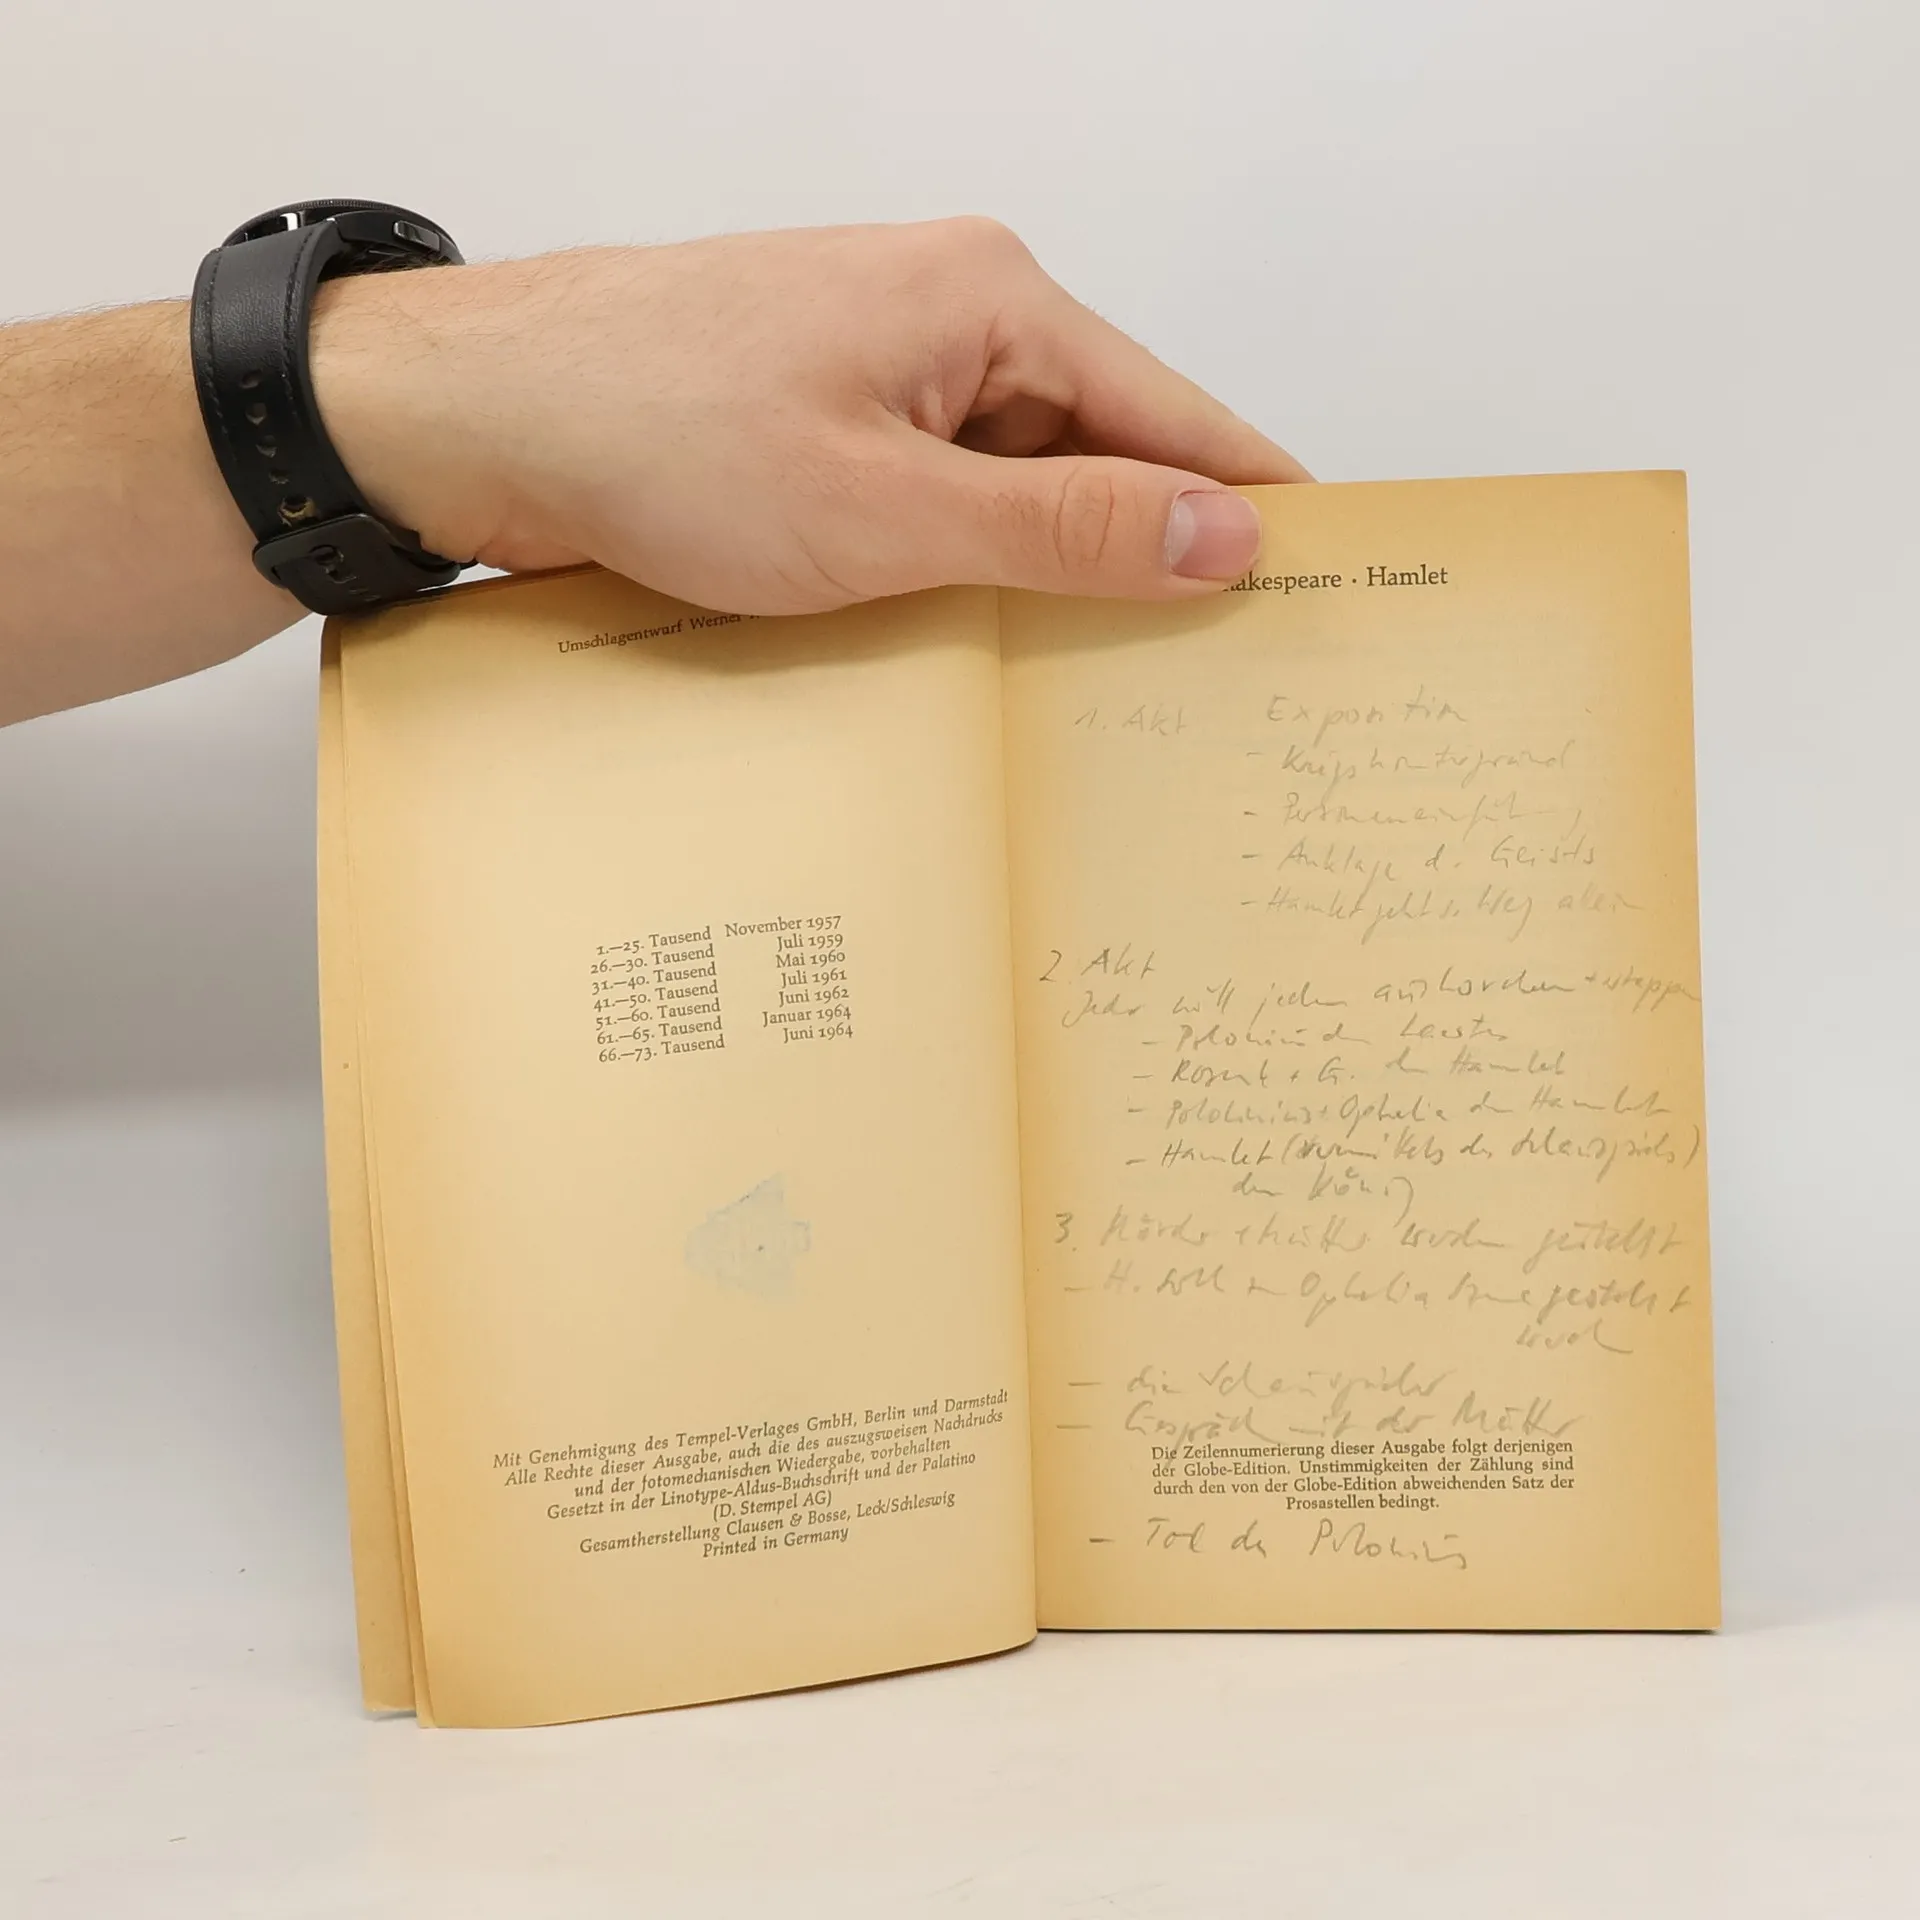 Umschlagentwurf Werner
1.—25. Tausend November 1957
26.—30. Tausend Juli 1959
31.—40. Tausend Mai 1960
41.—50. Tausend Juli 1961
51.—60. Tausend Juni 1962
61.—65. Tausend Januar 1964
66.—73. Tausend Juni 1964
Mit Genehmigung des Tempel-Verlages GmbH, Berlin und Darmstadt
Alle Rechte dieser Ausgabe, auch die des auszugsweisen Nachdrucks
und der fotomechanischen Wiedergabe, vorbehalten
Gesetzt in der Linotype-Aldus-Buchschrift und der Palatino
(D. Stempel AG)
Gesamtherstellung Clausen & Bosse, Leck/Schleswig
Printed in Germany
akespeare · Hamlet
1. Akt Exposition
- Kriegshintergrund
- Personeneinführung
- Anklage d. Geists
- Hamlet geht s. Weg allein
2. Akt
Jeder will jeden aushorchen +
- Polonius den Laertes
- Rosenk + G. den Hamlet
- Polonius + Ophelia den Hamlet
- Hamlet (vermittels des Schauspiels)
den König
3. Mörder + Mutter werden gestellt
- H. soll von Ophelia
- die Schauspieler
- Gespräch mit der Mutter
Die Zeilennumerierung dieser Ausgabe folgt derjenigen
der Globe-Edition. Unstimmigkeiten der Zählung sind
durch den von der Globe-Edition abweichenden Satz der
Prosastellen bedingt.
- Tod des Polonius